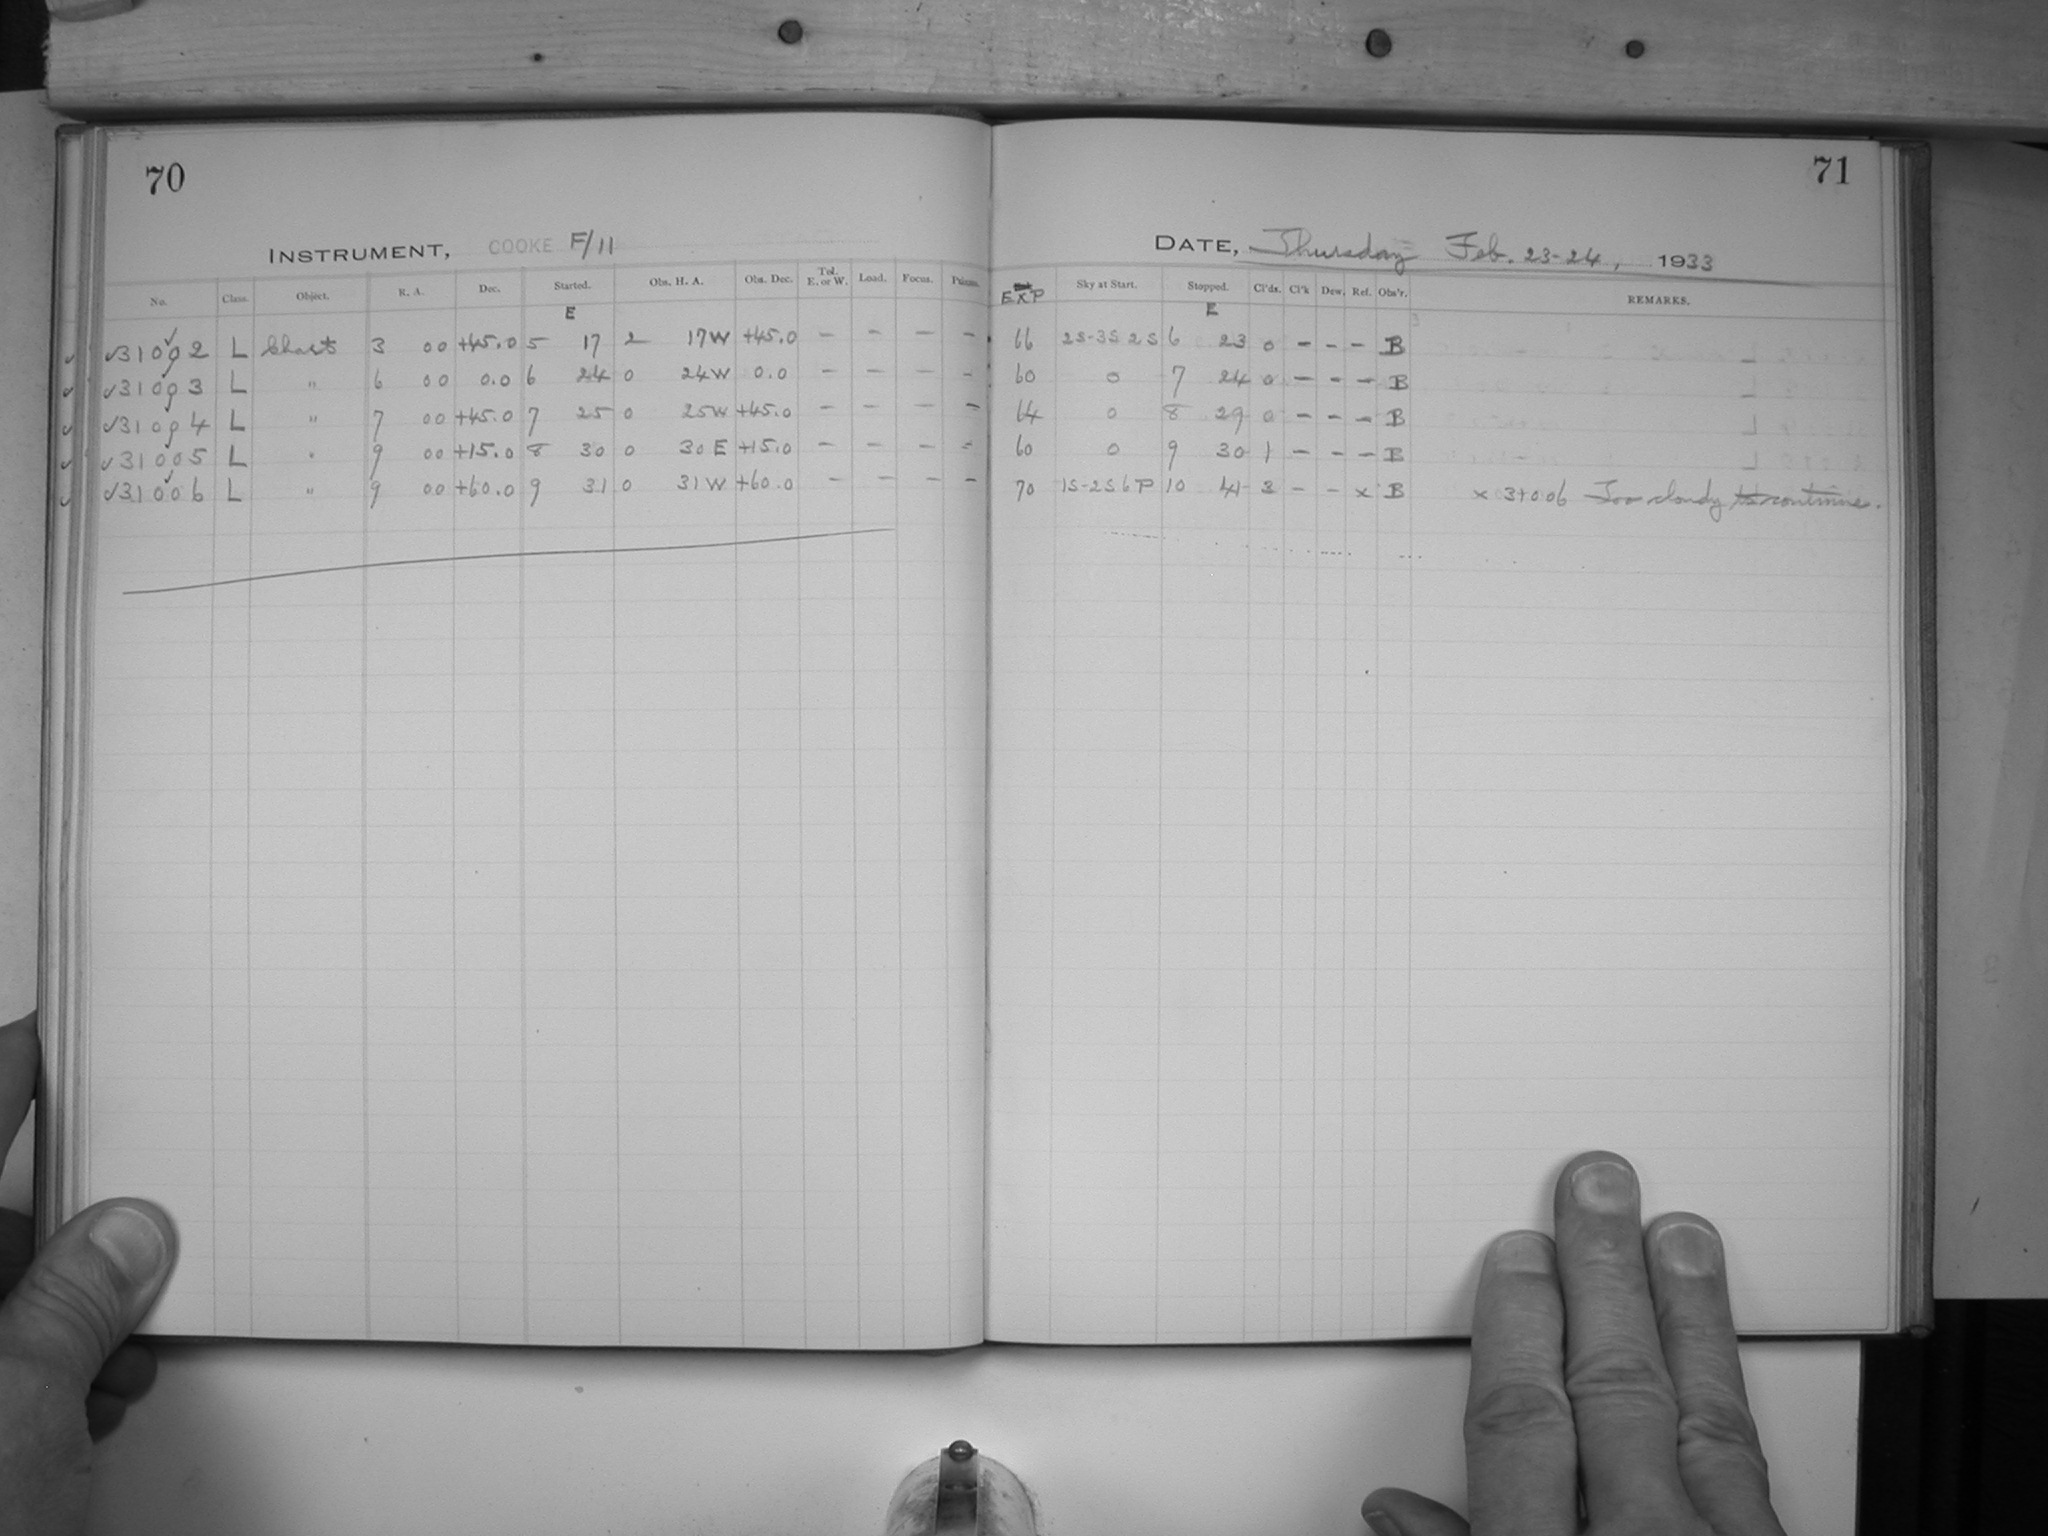 70
71
INSTRUMENT, COOKE F/11
DATE, Thursday Feb. 23-24, 1933
No. Class. Object. R. A. Dec. Started. Obs. H. A. Obs. Dec. Tel. E. or W. Load. Focus. EXP Sky at Start. Stopped. Cl'ds. Cl'k Dew. Ref. Obs'r. REMARKS.
E E
✓31002 L Chart 3 00 +45.0 5 17 2 17W +45.0 – – – – 66 2S-3S2S 6 23 0 – – – B
✓31003 L " 6 00 0.0 6 24 0 24W 0.0 – – – – 60 0 7 24 0 – – – B
✓31004 L " 7 00 +45.0 7 25 0 25W +45.0 – – – – 64 0 8 29 0 – – – B
✓31005 L " 9 00 +15.0 8 30 0 30E +15.0 – – – – 60 0 9 30 1 – – – B
✓31006 L " 9 00 +60.0 9 31 0 31W +60.0 – – – – 70 1S-2S6P 10 41 3 – – x B x 31006 Too cloudy to continue.